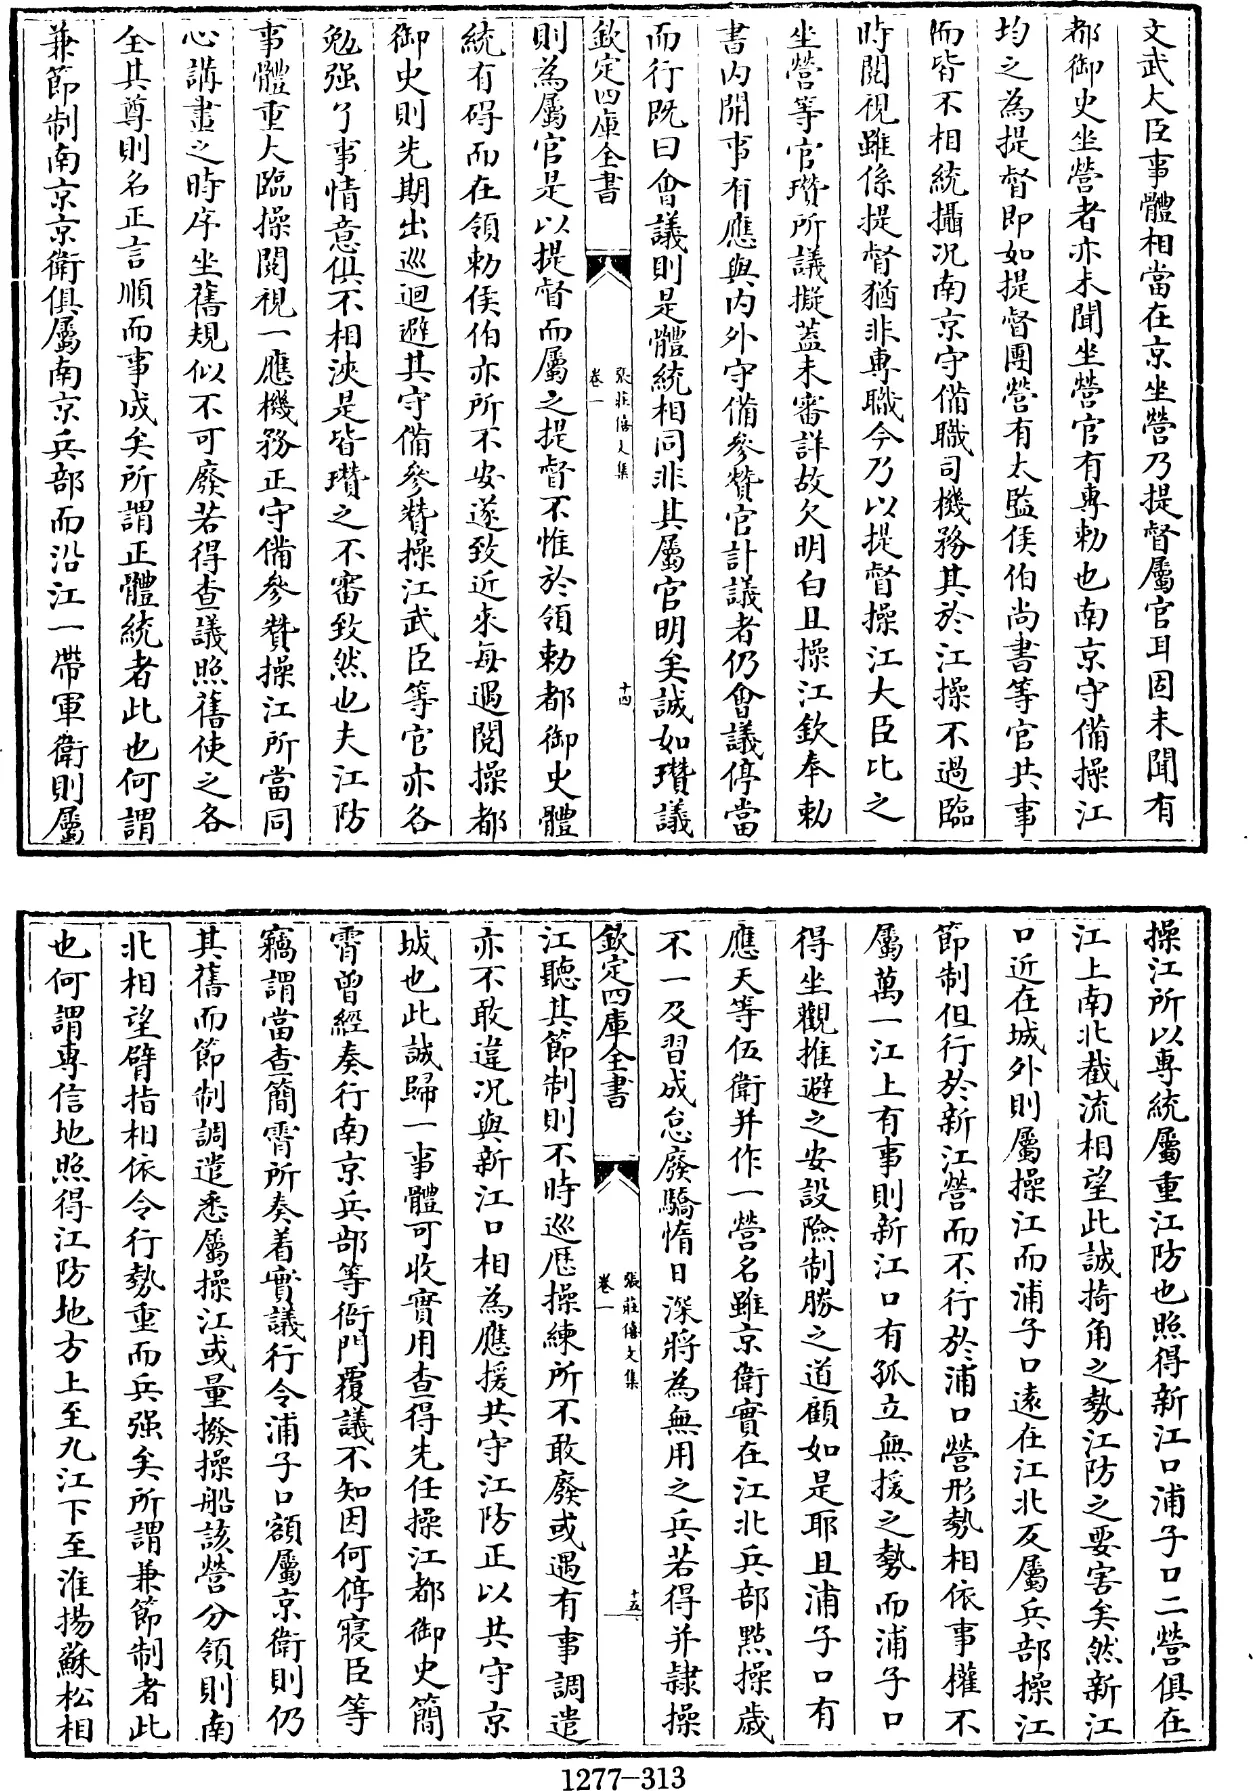 文武大臣事體相當在京坐營乃提督屬官耳固未聞有
都御史坐營者亦未聞坐營官有專勅也南京守備操江
均之為提督即如提督團營有太監侯伯尚書等官共事
而皆不相統攝况南京守備職司機務其於江操不過臨
時閱視雖係提督猶非專職今乃以提督操江大臣比之
坐營等官瓚所議擬蓋未審詳故欠明白且操江欽奉勅
書内開事有應與内外守備參贊官計議者仍會議停當
而行既曰會議則是體統相同非其屬官明矣誠如瓚議
欽定四庫全書
張莊僖文集
卷一
十四
則為屬官是以提督而屬之提督不惟於領勅都御史體
統有碍而在領勅侯伯亦所不安遂致近来每遇閱操都
御史則先期出巡迴避其守備參贊操江武臣等官亦各
勉强了事情意俱不相浹是皆瓚之不審致然也夫江防
事體重大臨操閱視一應機務正守備參贊操江所當同
心講畫之時序坐舊規似不可廢若得查議照舊使之各
全其尊則名正言順而事成矣所謂正體統者此也何謂
兼節制南京京衛俱屬南京兵部而沿江一帶軍衛則屬
操江所以專統屬重江防也照得新江口浦子口二營俱在
江上南北截流相望此誠掎角之勢江防之要害矣然新江
口近在城外則屬操江而浦子口遠在江北反屬兵部操江
節制但行於新江營而不行於浦口營形勢相依事權不
屬萬一江上有事則新江口有孤立無援之勢而浦子口
得坐觀推避之安設險制勝之道顧如是耶且浦子口有
應天等伍衛并作一營名雖京衛實在江北兵部點操歲
不一及習成怠廢驕惰日深將為無用之兵若得并隸操
欽定四庫全書
張莊僖文集
卷一
十五
江聽其節制則不時巡歷操練所不敢廢或遇有事調遣
亦不敢違况與新江口相為應援共守江防正以共守京
城也此誠歸一事體可收實用查得先任操江都御史簡
霄曾經奏行南京兵部等衙門覆議不知因何停寢臣等
竊謂當查簡霄所奏着實議行令浦子口額屬京衛則仍
其舊而節制調遣悉屬操江或量撥操船該營分領則南
北相望臂指相依令行勢重而兵强矣所謂兼節制者此
也何謂專信地照得江防地方上至九江下至淮揚蘇松相
1277-313